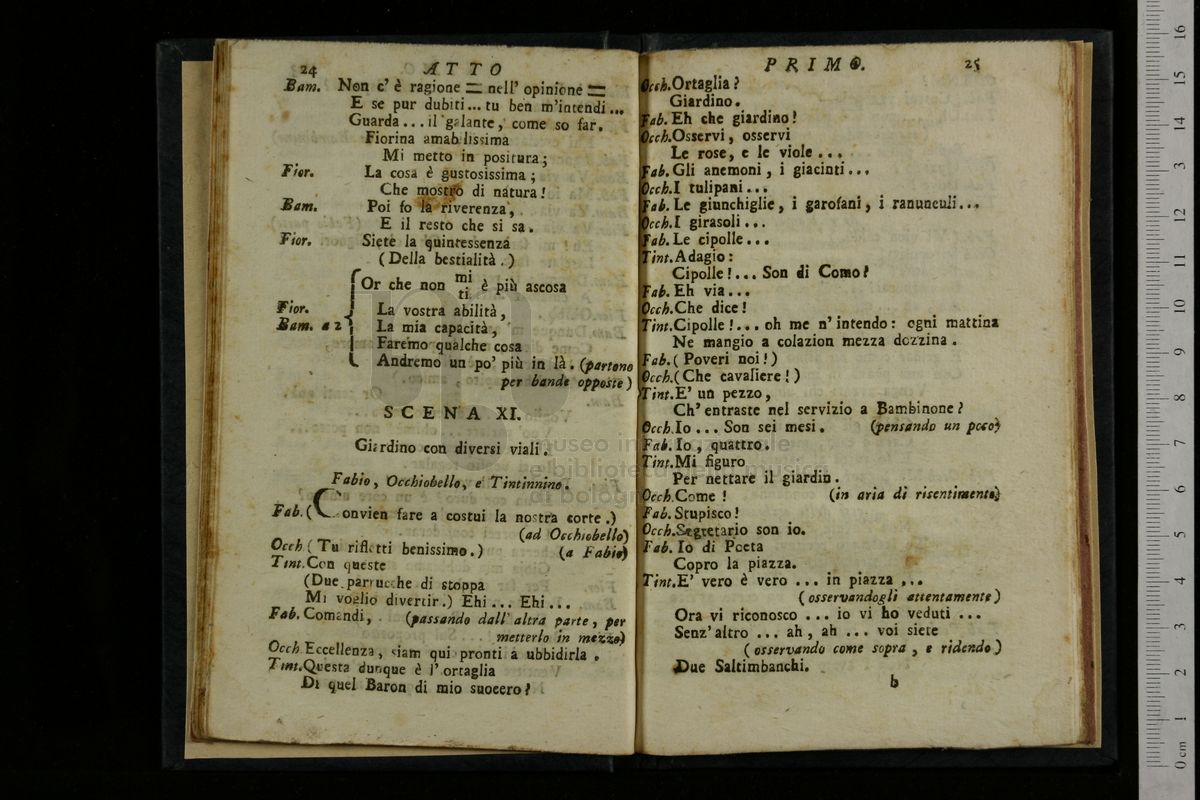 24 ATTO
Bam. Non c' è ragione = nell' opinione =
E se pur dubiti... tu ben m'intendi...
Guarda... il galante, come so far.
Fiorina amabilissima
Mi metto in positura;
Fior. La cosa è gustosissima;
Che mostro di natura!
Bam. Poi fo la riverenza,
E il resto che si sa.
Fior. Siete la quintessenza
(Della bestialità.)
Or che non mi ti è più ascosa
Fior. La vostra abilità,
Bam. a 2 La mia capacità,
Faremo qualche cosa
Andremo un po' più in là. (partono
per bande opposte)
SCENA XI.
Giardino con diversi viali.
Fabio, Occhiobello, e Tintinnino.
Fab. (Convien fare a costui la nostra corte.)
(ad Occhiobello)
Occh (Tu rifletti benissimo.) (a Fabio)
Tint. Con queste
(Due parrucche di stoppa
Mi voglio divertir.) Ehi... Ehi...
Fab. Comandi, (passando dall' altra parte, per
metterlo in mezzo)
Occh Eccellenza, siam qui pronti a ubbidirla.
Tint. Questa dunque è l' ortaglia
Di quel Baron di mio suocero?
PRIMO. 25
Occh. Ortaglia?
Giardino.
Fab. Eh che giardino!
Occh. Osservi, osservi
Le rose, e le viole...
Fab. Gli anemoni, i giacinti...
Occh. I tulipani...
Fab. Le giunchiglie, i garofani, i ranunculi...
Occh. I girasoli...
Fab. Le cipolle...
Tint. Adagio:
Cipolle!... Son di Como?
Fab. Eh via...
Occh. Che dice!
Tint. Cipolle!... oh me n' intendo: ogni mattina
Ne mangio a colazion mezza dozzina.
Fab. (Poveri noi!)
Occh. (Che cavaliere!)
Tint. E' un pezzo,
Ch' entraste nel servizio a Bambinone?
Occh. Io... Son sei mesi. (pensando un poco)
Fab. Io, quattro.
Tint. Mi figuro
Per nettare il giardin.
Occh. Come! (in aria di risentimento)
Fab. Stupisco!
Occh. Segretario son io.
Fab. Io di Poeta
Copro la piazza.
Tint. E' vero è vero ... in piazza ...
(osservandogli attentamente)
Ora vi riconosco ... io vi ho veduti ...
Senz' altro ... ah, ah ... voi siete
(osservando come sopra, e ridendo)
Due Saltimbanchi.
b
museo internazionale
e biblioteca della musica
di bologna
0 cm 1 2 3 4 5 6 7 8 9 10 11 12 13 14 15 16